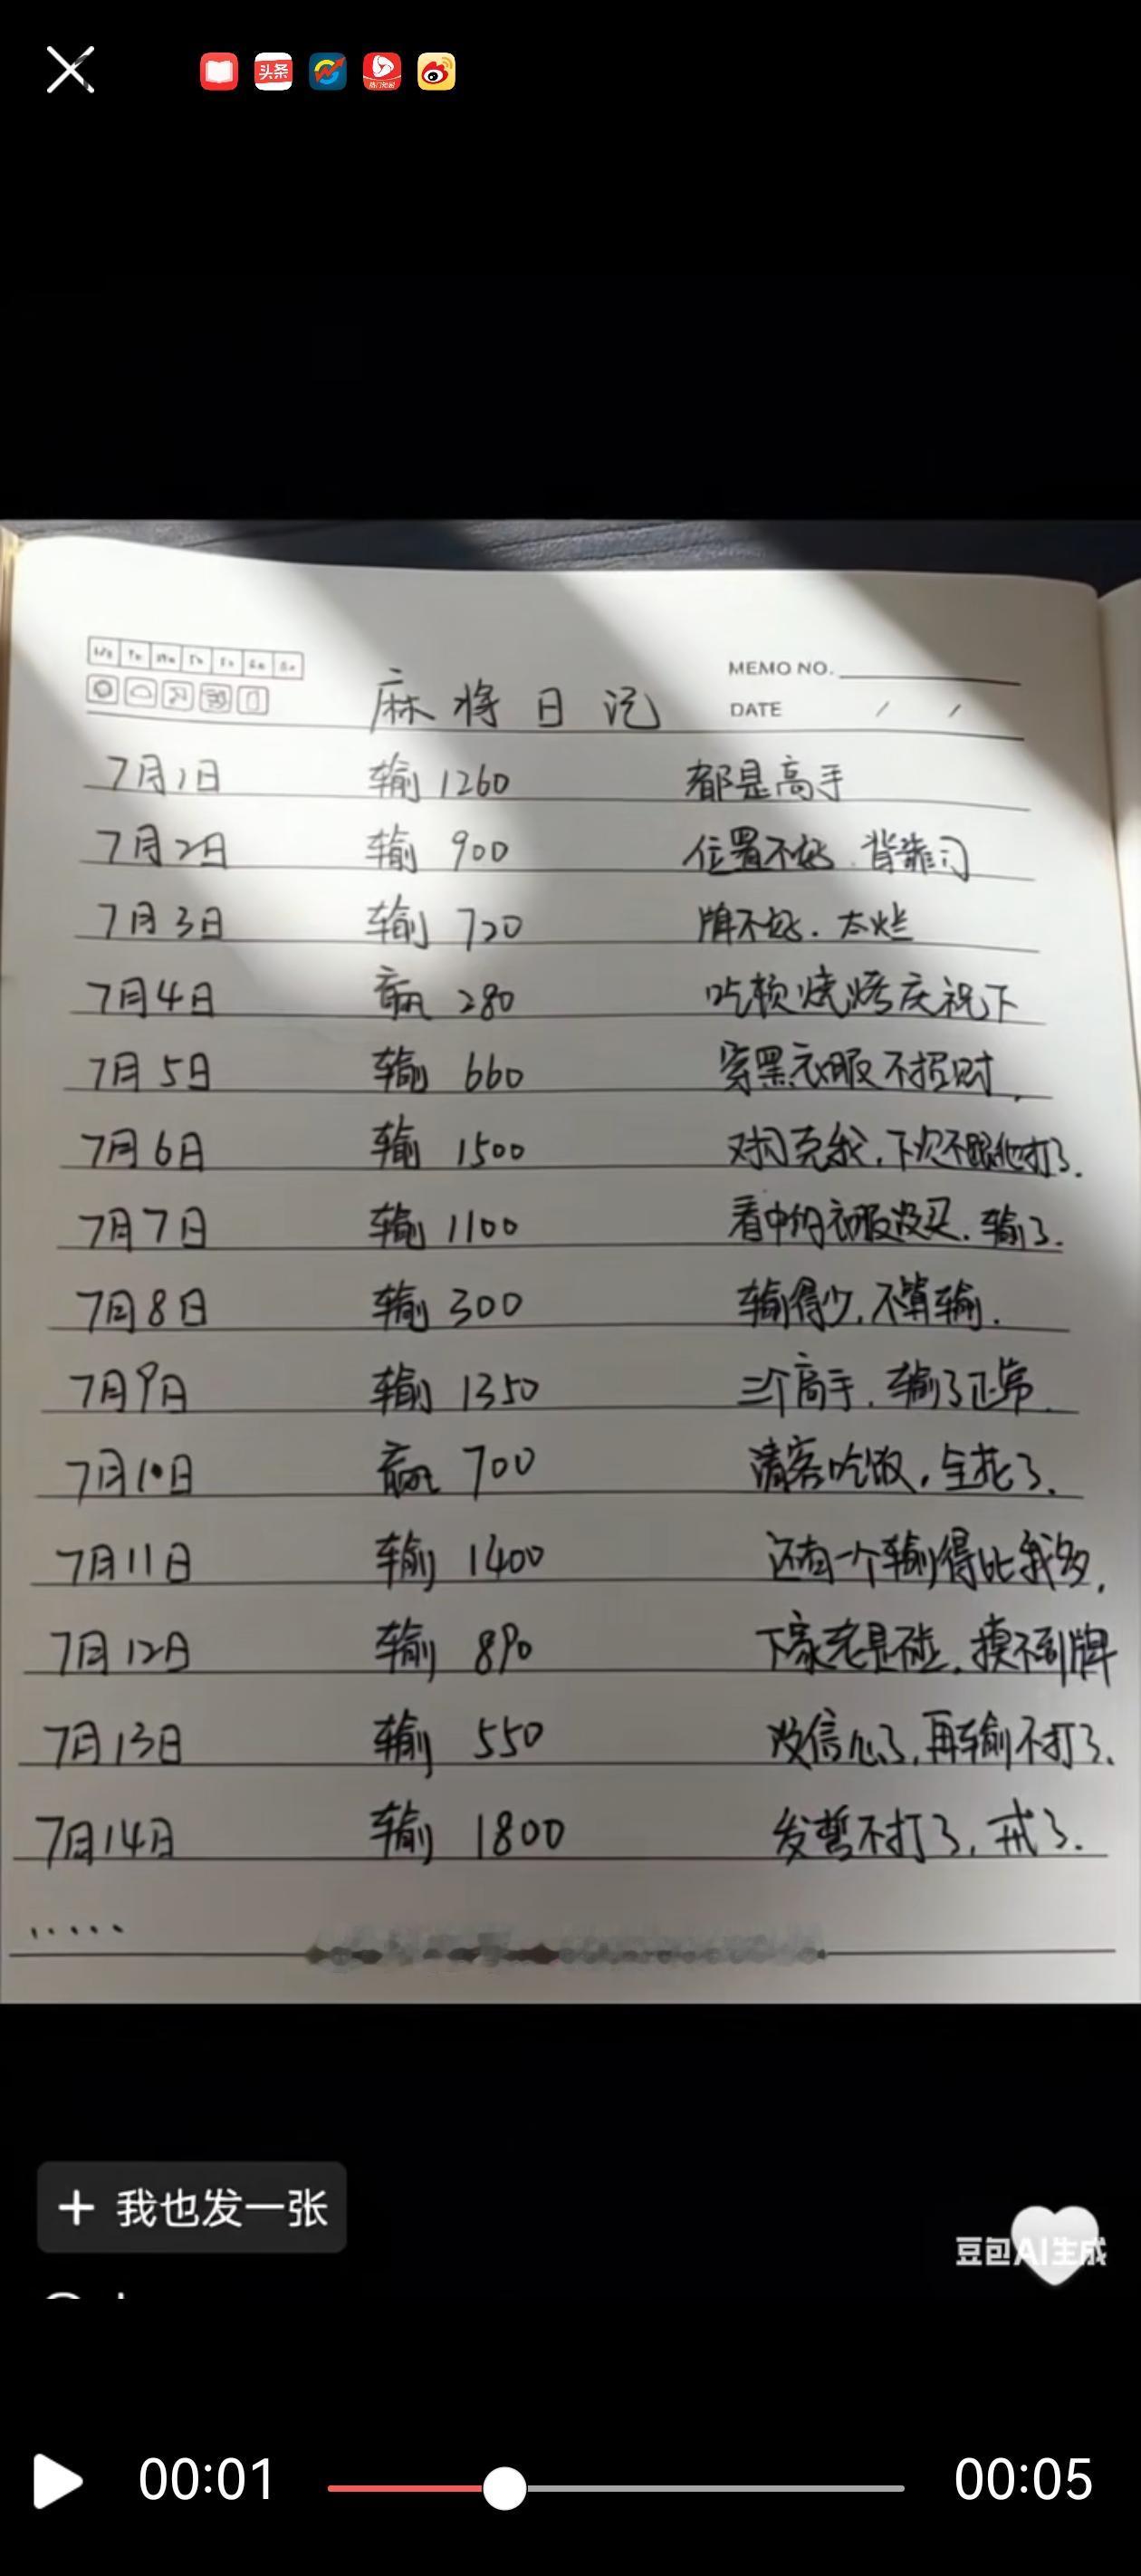 头条
热门短剧
MEMO NO.
麻将日记
DATE / /
7月1日 输 1260 都是高手
7月2日 输 900 位置不好.背靠门
7月3日 输 720 牌不好.太烂
7月4日 赢 280 吃顿烧烤庆祝下
7月5日 输 660 穿黑衣服不招财,
7月6日 输 1500 对门克我,下次不跟他打了.
7月7日 输 1100 看中的衣服没买.输了.
7月8日 输 300 输得少,不算输.
7月9日 输 1350 三个高手.输了正常.
7月10日 赢 700 请客吃饭,全花了.
7月11日 输 1400 还有一个输得比我多,
7月12日 输 890 下家老是碰,摸不到牌
7月13日 输 550 没信心了,再输不打了.
7月14日 输 1800 发誓不打了,戒了.
.....
+ 我也发一张
豆包AI生成
00:01 00:05